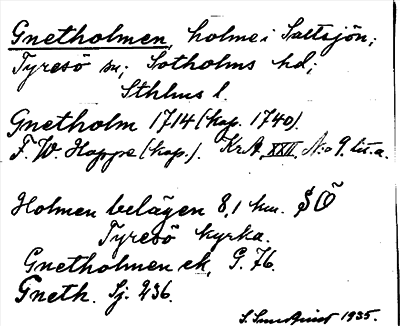 Gnetholmen, holme i Saltsjön;
Tyresö sn; Sotholms hd;
Sthlms l.
Gnetholm 1714 (kop. 1740).
F. W. Hoppe (kop.). KrA, XXII, N:o 9. lit. a.
Holmen belägen 8,1 km. SÖ
Tyresö kyrka.
Gnetholmen ek, G. 76.
Gneth. Sj. 236.
S. Sundqvist 1935.